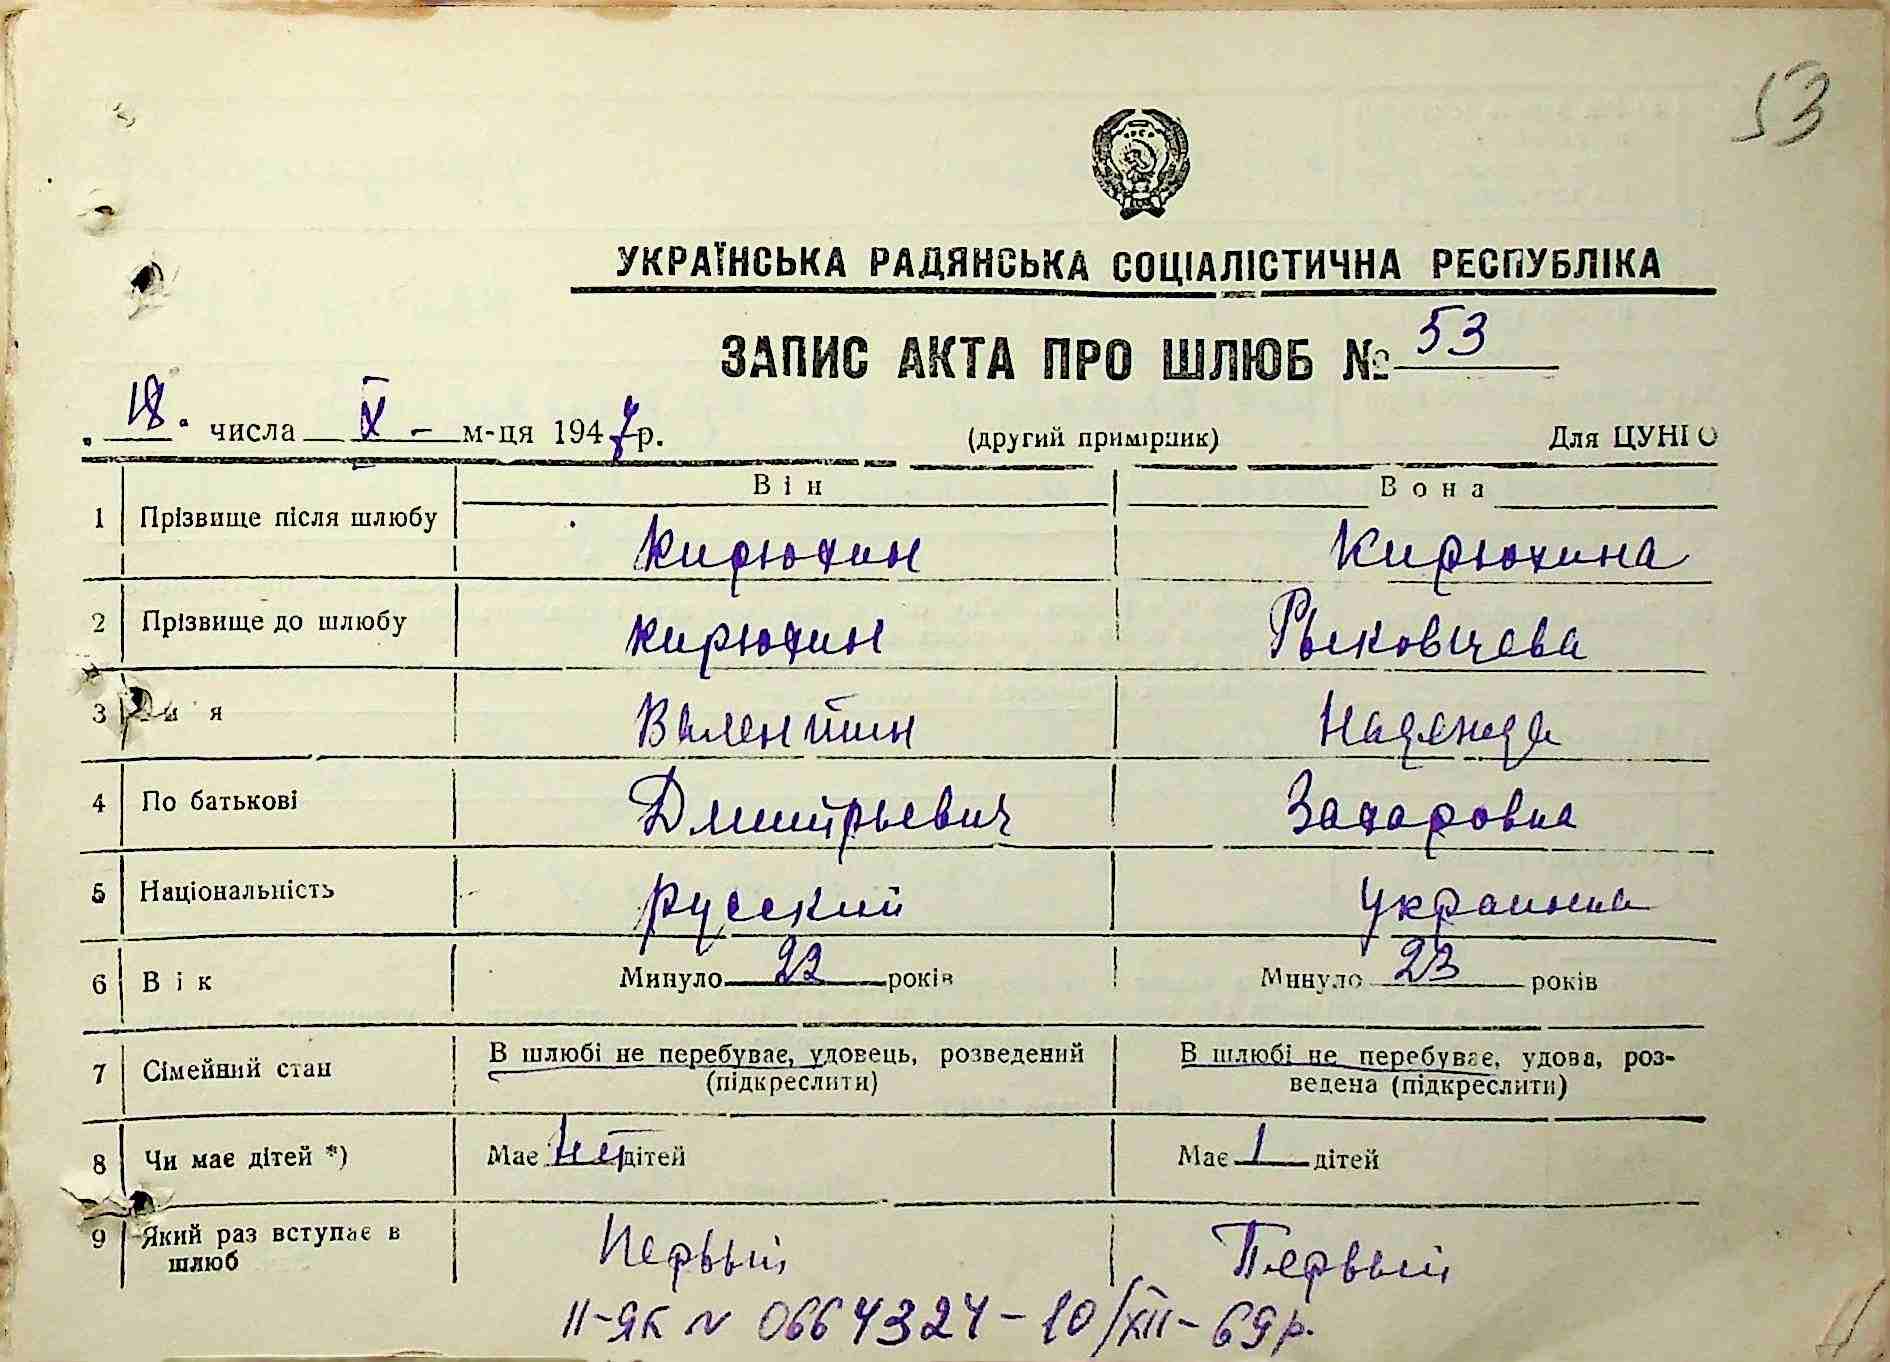 53
УКРАЇНСЬКА РАДЯНСЬКА СОЦІАЛІСТИЧНА РЕСПУБЛІКА
ЗАПИС АКТА ПРО ШЛЮБ № 53
„18" числа X - м-ця 1947 р. (другий примірник) Для ЦУНГО
Він Вона
1 Прізвище після шлюбу Кирюхин Кирюхина
2 Прізвище до шлюбу Кирюхин Рыковцева
3 я Валентин Надежда
4 По батькові Дмитрьевич Захаровна
5 Національність русский украинка
6 Вік Минуло 22 років Минуло 23 років
7 Сімейний стан В шлюбі не перебуває, удовець, розведений (підкреслити) В шлюбі не перебуває, удова, роз-
ведена (підкреслити)
8 Чи має дітей *) Має нет дітей Має 1 дітей
9 Який раз вступає в Первый Первый
шлюб
II-ЯК N 0664324-10/XII-69р.